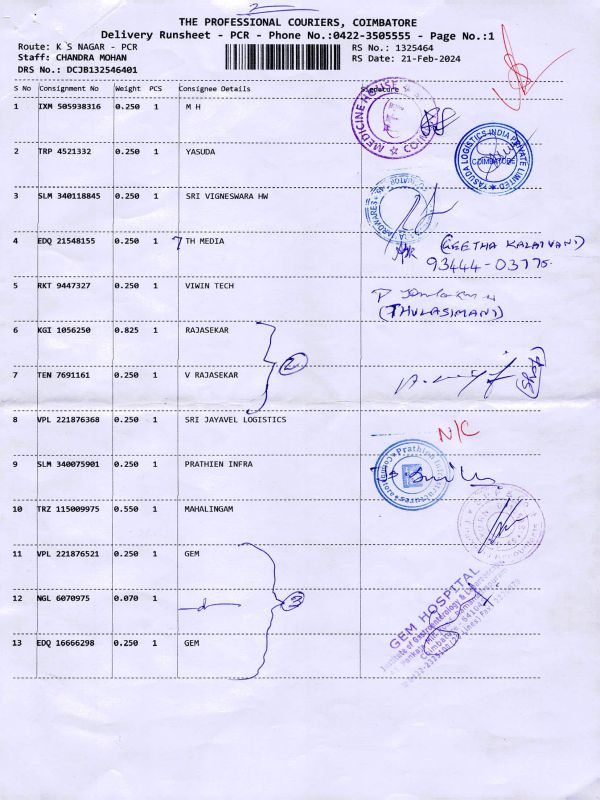 2
THE PROFESSIONAL COURIERS, COIMBATORE
Delivery Runsheet - PCR - Phone No.:0422-3505555 - Page No.:1
Route: K S NAGAR - PCR RS No.: 1325464
Staff: CHANDRA MOHAN RS Date: 21-Feb-2024
DRS No.: DCJB132546401
S No Consignment No Weight PCS Consignee Details Signature
1 IXM 505938316 0.250 1 M H
MEDICINE HOUSE
2 TRP 4521332 0.250 1 YASUDA
YASUDA LOGISTICS INDIA PRIVATE LIMITED
COIMBATORE
3 SLM 340118845 0.250 1 SRI VIGNESWARA HW
4 EDQ 21548155 0.250 1 7 TH MEDIA (GEETHA KALAIVANI)
93444-03775
5 RKT 9447327 0.250 1 VIWIN TECH
(THULASIMANI)
6 KGI 1056250 0.825 1 RAJASEKAR
2
7 TEN 7691161 0.250 1 V RAJASEKAR
8 VPL 221876368 0.250 1 SRI JAYAVEL LOGISTICS N/C
9 SLM 340075901 0.250 1 PRATHIEN INFRA
Prathien Infrastructures
10 TRZ 115009975 0.550 1 MAHALINGAM
11 VPL 221876521 0.250 1 GEM
12 NGL 6070975 0.070 1
3
13 EDQ 16666298 0.250 1 GEM
GEM HOSPITAL
Institute of Gastroenterology &
Coimbatore - 6410